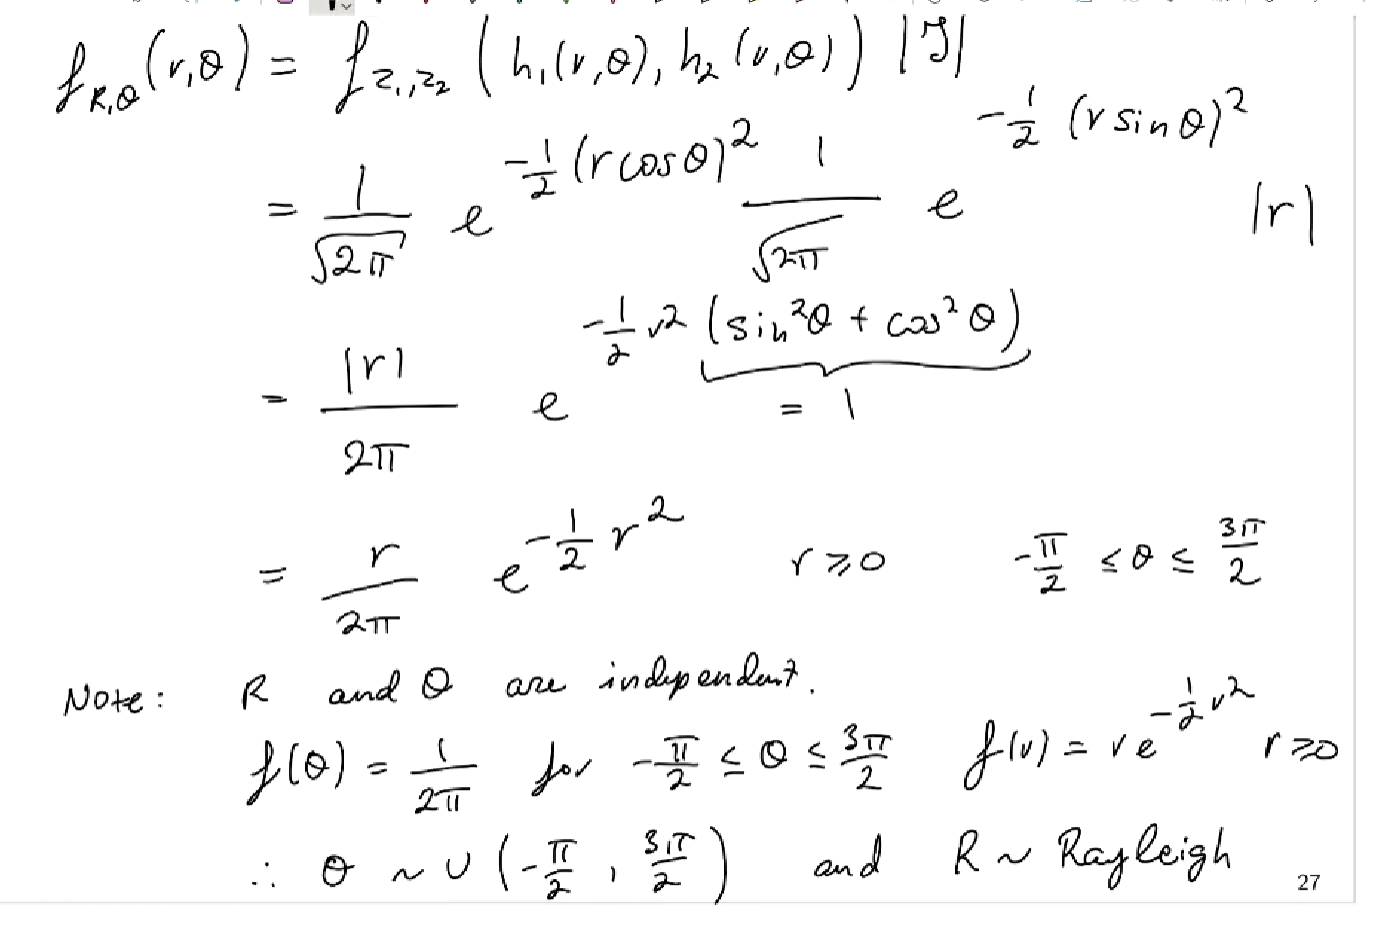 f_{R,Θ}(r,θ) = f_{Z₁,Z₂}(h₁(r,θ), h₂(r,θ)) |J|
= \frac{1}{\sqrt{2π}} e^{-\frac{1}{2}(r cosθ)^2} \frac{1}{\sqrt{2π}} e^{-\frac{1}{2}(r sinθ)^2} |r|
= \frac{|r|}{2π} e^{-\frac{1}{2}r^2 \underbrace{(sin^2θ + cos^2θ)}_{= 1}}
= \frac{r}{2π} e^{-\frac{1}{2}r^2} r ≥ 0 -\frac{π}{2} ≤ θ ≤ \frac{3π}{2}
Note: R and Θ are independent.
f(θ) = \frac{1}{2π} for -\frac{π}{2} ≤ θ ≤ \frac{3π}{2} f(r) = r e^{-\frac{1}{2}r^2} r ≥ 0
∴ Θ ~ U(-\frac{π}{2}, \frac{3π}{2}) and R ~ Rayleigh
27